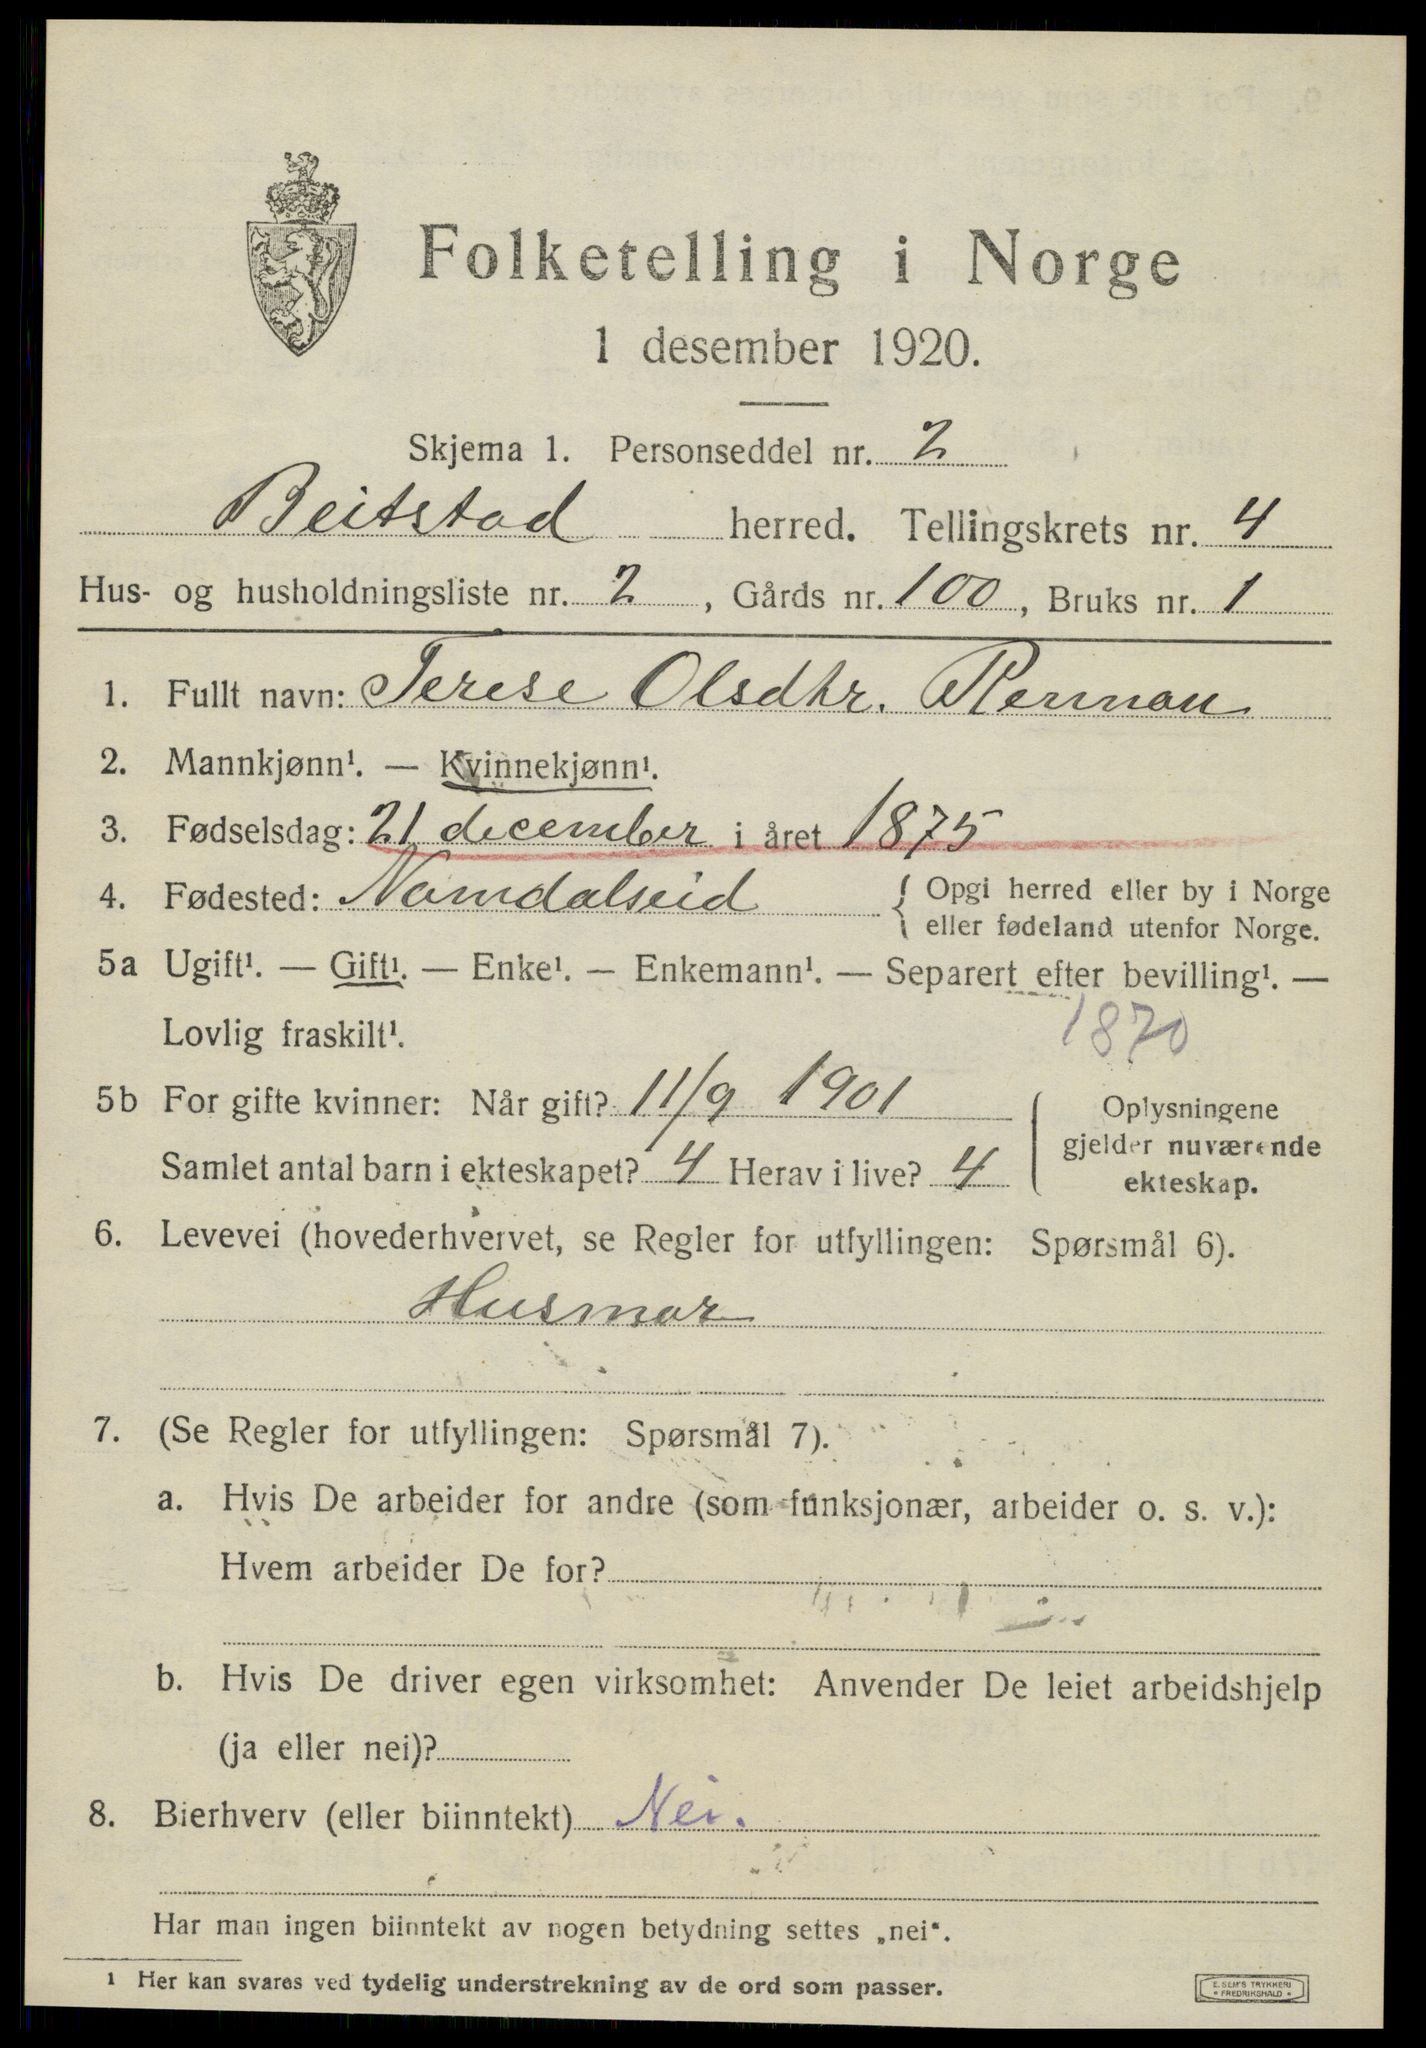 Folketelling i Norge
1 desember 1920.
Skjema 1. Personseddel nr. 2
Beitstad herred. Tellingskrets nr. 4
Hus- og husholdningsliste nr. 2, Gårds nr. 100, Bruks nr. 1
1. Fullt navn: Terese Olsdtr.
2. Mannkjønn¹. — Kvinnekjønn¹.
3. Fødselsdag: 21 december i året 1875
4. Fødested: Namdalseid { Opgi herred eller by i Norge
eller fødeland utenfor Norge.
5a Ugift¹. — Gift¹. — Enke¹. — Enkemann¹. — Separert efter bevilling¹. —
Lovlig fraskilt¹. 1870
5b For gifte kvinner: Når gift? 11/9 1901
Samlet antal barn i ekteskapet? 4 Herav i live? 4
Oplysningene
gjelder nuværende
ekteskap.
6. Levevei (hovederhvervet, se Regler for utfyllingen: Spørsmål 6).
Husmor
7. (Se Regler for utfyllingen: Spørsmål 7).
a. Hvis De arbeider for andre (som funksjonær, arbeider o. s. v.):
Hvem arbeider De for?
b. Hvis De driver egen virksomhet: Anvender De leiet arbeidshjelp
(ja eller nei)?
8. Bierhverv (eller biinntekt) Nei.
Har man ingen biinntekt av nogen betydning settes „nei“.
1 Her kan svares ved tydelig understrekning av de ord som passer.
E. SEM'S TRYKKERI
• FREDRIKSHALD •